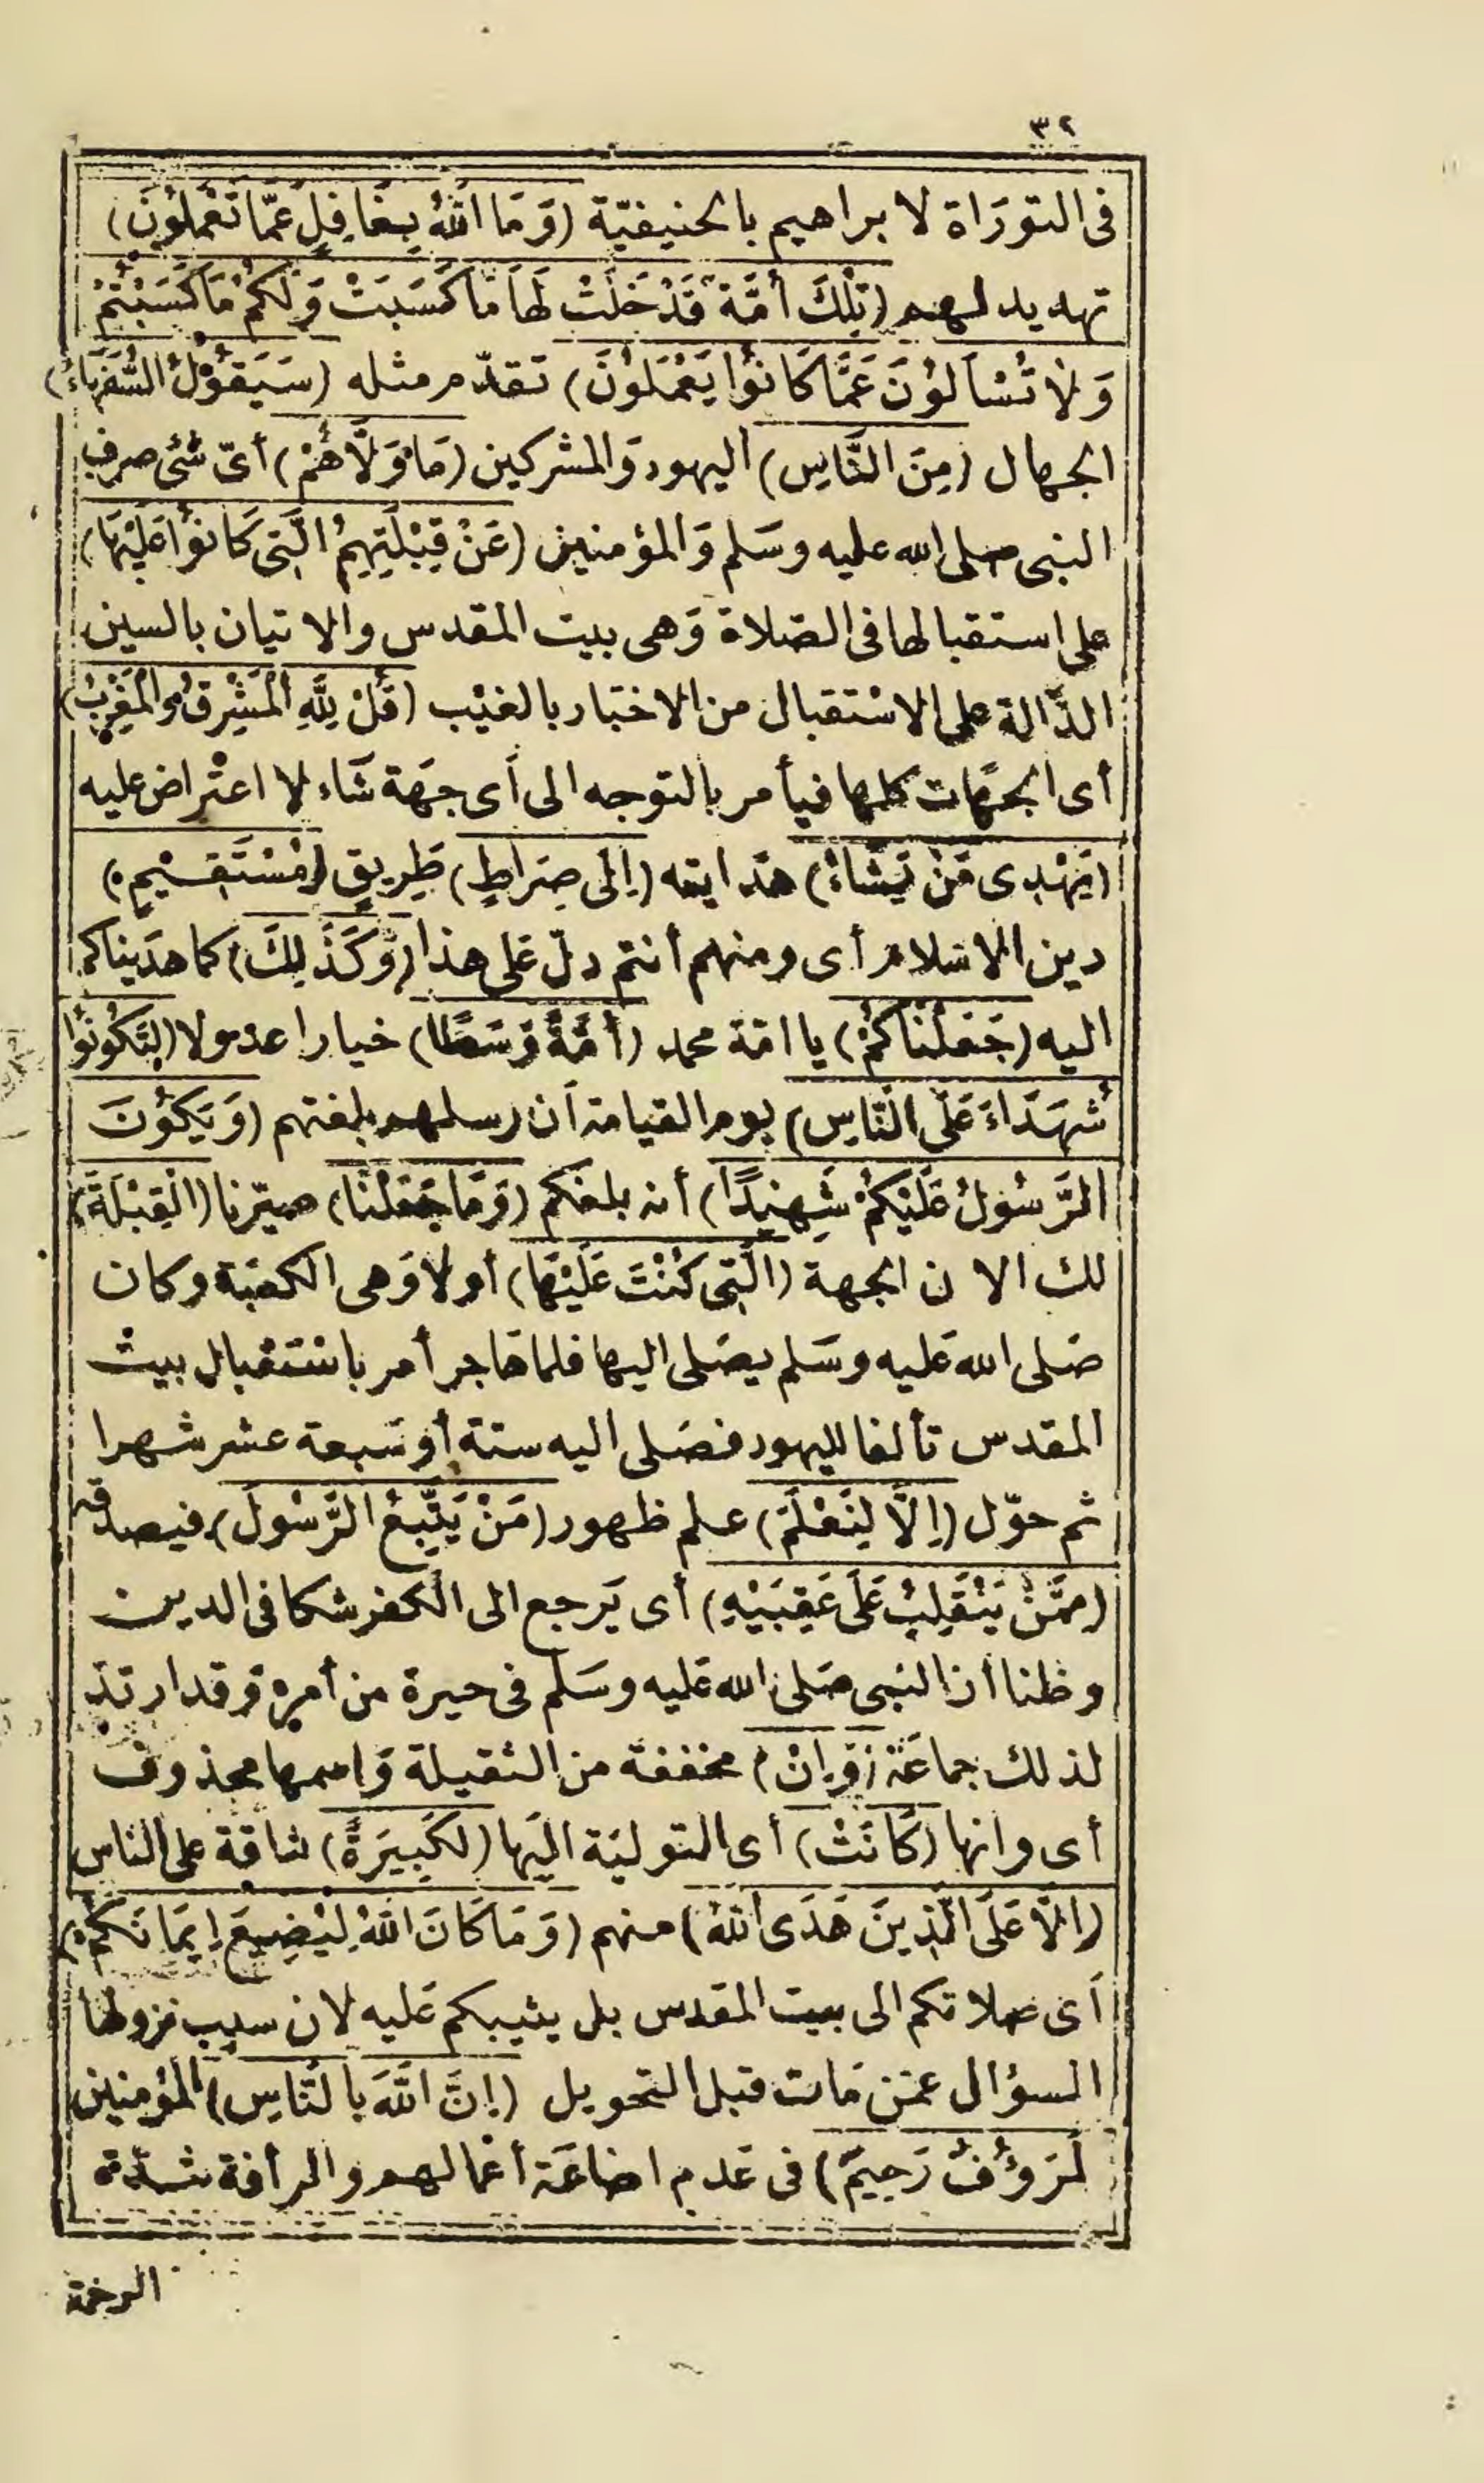 ٣٢
فى التورَاة لا براهيم بالحنيفيّة (وَمَا اللهُ بِغَافِلٍ عَمّا تَعْمَلُونَ)
تهديد لهم (تِلْكَ أُمَّة قَدْ خَلَتْ لَهَا مَا كَسَبَتْ وَلَكُمْ مَا كَسَبْتُمْ
وَلَا تُسْأَلُوْنَ عَمَّا كَانُوْا يَعْمَلُوْنَ) تقدّم مثله (سَيَقُوْلُ السُّفَهَاءُ)
الجهال (مِنَ النَّاسِ) اليهود وَالمشركين (مَا وَلَّاهُمْ) أىّ شئ صرف
النبى صلى الله عليه وسَلم وَالمؤمنين (عَنْ قِبْلَتِهِمُ الَّتِى كَانُوْا عَلَيْهَا)
على استقبالها فى الصّلاة وَهى بيت المقدس والاتيان بالسين
الدّالة على الاسْتقبال من الاخبَار بالغيْب (قُلْ لِلَّهِ الْمَشْرِقُ وَالْمَغْرِبُ)
أى الجهَات كلها فيأمر بالتوجه الى أى جهَة شَاء لا اعتْراض عليه
(يَهْدِى مَنْ يَشَاءُ) هدَايته (إِلَى صِرَاطٍ) طَرِيقٍ (مُسْتَقِيْمٍ)
دين الاسْلام أى ومنهم أنتم دلّ عَلى هذا (وَكَذَلِكَ) كما هدَيناكم
اليه (جَعَلْنَاكُمْ) يا امّة محمد (أُمَّةً وَسَطًا) خيارا عدولا (لِتَكُوْنُوْا
شُهَدَاءَ عَلَى النَّاسِ) يوم القيامة أن رسلهم بلغتهم (وَيَكُوْنَ
الرَّسُوْلُ عَلَيْكُمْ شَهِيْدًا) أنه بلغكم (وَمَا جَعَلْنَا) صيّرنا (الْقِبْلَةَ)
لك الا ن الجهة (الَّتِى كُنْتَ عَلَيْهَا) أولا وَهى الكعبَة وكان
صَلى الله عَليه وسَلم يصَلى اليها فلما هَاجر أمر باسْتقْبال بيتْ
المقدس تألفا لليهود فصَلى اليه ستة أو سَبعة عشر شهرا
ثم حوّل (إِلَّا لِنَعْلَمَ) علم ظهور (مَنْ يَتَّبِعُ الرَّسُوْلَ) فيصدقه
(مِمَّنْ يَنْقَلِبُ عَلَى عَقِبَيْهِ) أى يَرجع الى الكفر شكا فى الدين
وظنا أن النبى صَلى الله عَليه وسَلم فى حيرة من أمره وَقد ارتدّ
لذلك جماعَة (وَإِنْ) مخففة من الثقيلة وَاسمها محذوف
أى وانها (كَانَتْ) أى التوليَة اليَها (لَكَبِيرَةً) شاقة على الناس
(إِلَّا عَلَى الَّذِينَ هَدَى اللهُ) منهم (وَمَا كَانَ اللهُ لِيُضِيعَ إِيمَانَكُمْ)
أى صَلاتكم الى بيت المقدس بل يثيبكم عَليه لان سبب نزولها
السؤال عمن مَات قبل التحويل (إِنَّ اللهَ بِالنَّاسِ) المؤمنين
لَرَؤُفٌ رَحِيمٌ) فى عَدم اضاعَة أعمالهم والرأفة شدّة
الرحمة